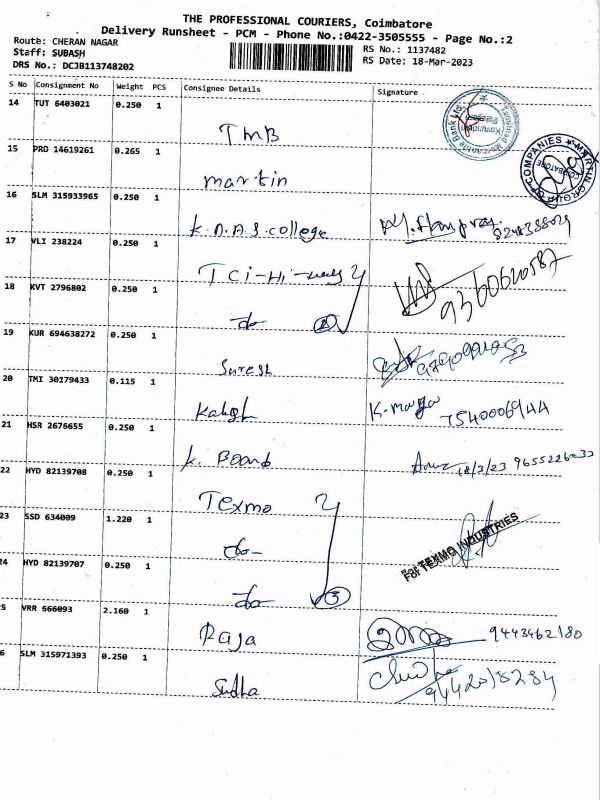 THE PROFESSIONAL COURIERS, Coimbatore
Delivery Runsheet - PCM - Phone No.:0422-3505555 - Page No.:2
Route: CHERAN NAGAR
Staff: SUBASH
DRS No.: DCJB113748202
RS No.: 1137482
RS Date: 18-Mar-2023
S No Consignment No Weight PCS Consignee Details Signature
14 TUT 6403021 0.250 1 TMB
15 PRO 14619261 0.265 1 martin
16 SLM 315933965 0.250 1 K.N.A.S.college
17 VLI 238224 0.250 1 TCi-Hi-ways
18 KVT 2796802 0.250 1 do 2 9360620587
19 KUR 694638272 0.250 1 Suresh
20 TMI 30179433 0.115 1 7540006944
21 HSR 2676655 0.250 1 K. Board 18/3/23
22 HYD 82139708 0.250 1 Texmo
23 SSD 634009 1.220 1 do- For TEXMO INDUSTRIES
24 HYD 82139707 0.250 1 do 3
25 VRR 666093 2.160 1 Raja 9443462180
26 SLM 315971393 0.250 1 Sudha 9442018284
MARTIN GROUP OF COMPANIES
COIMBATORE